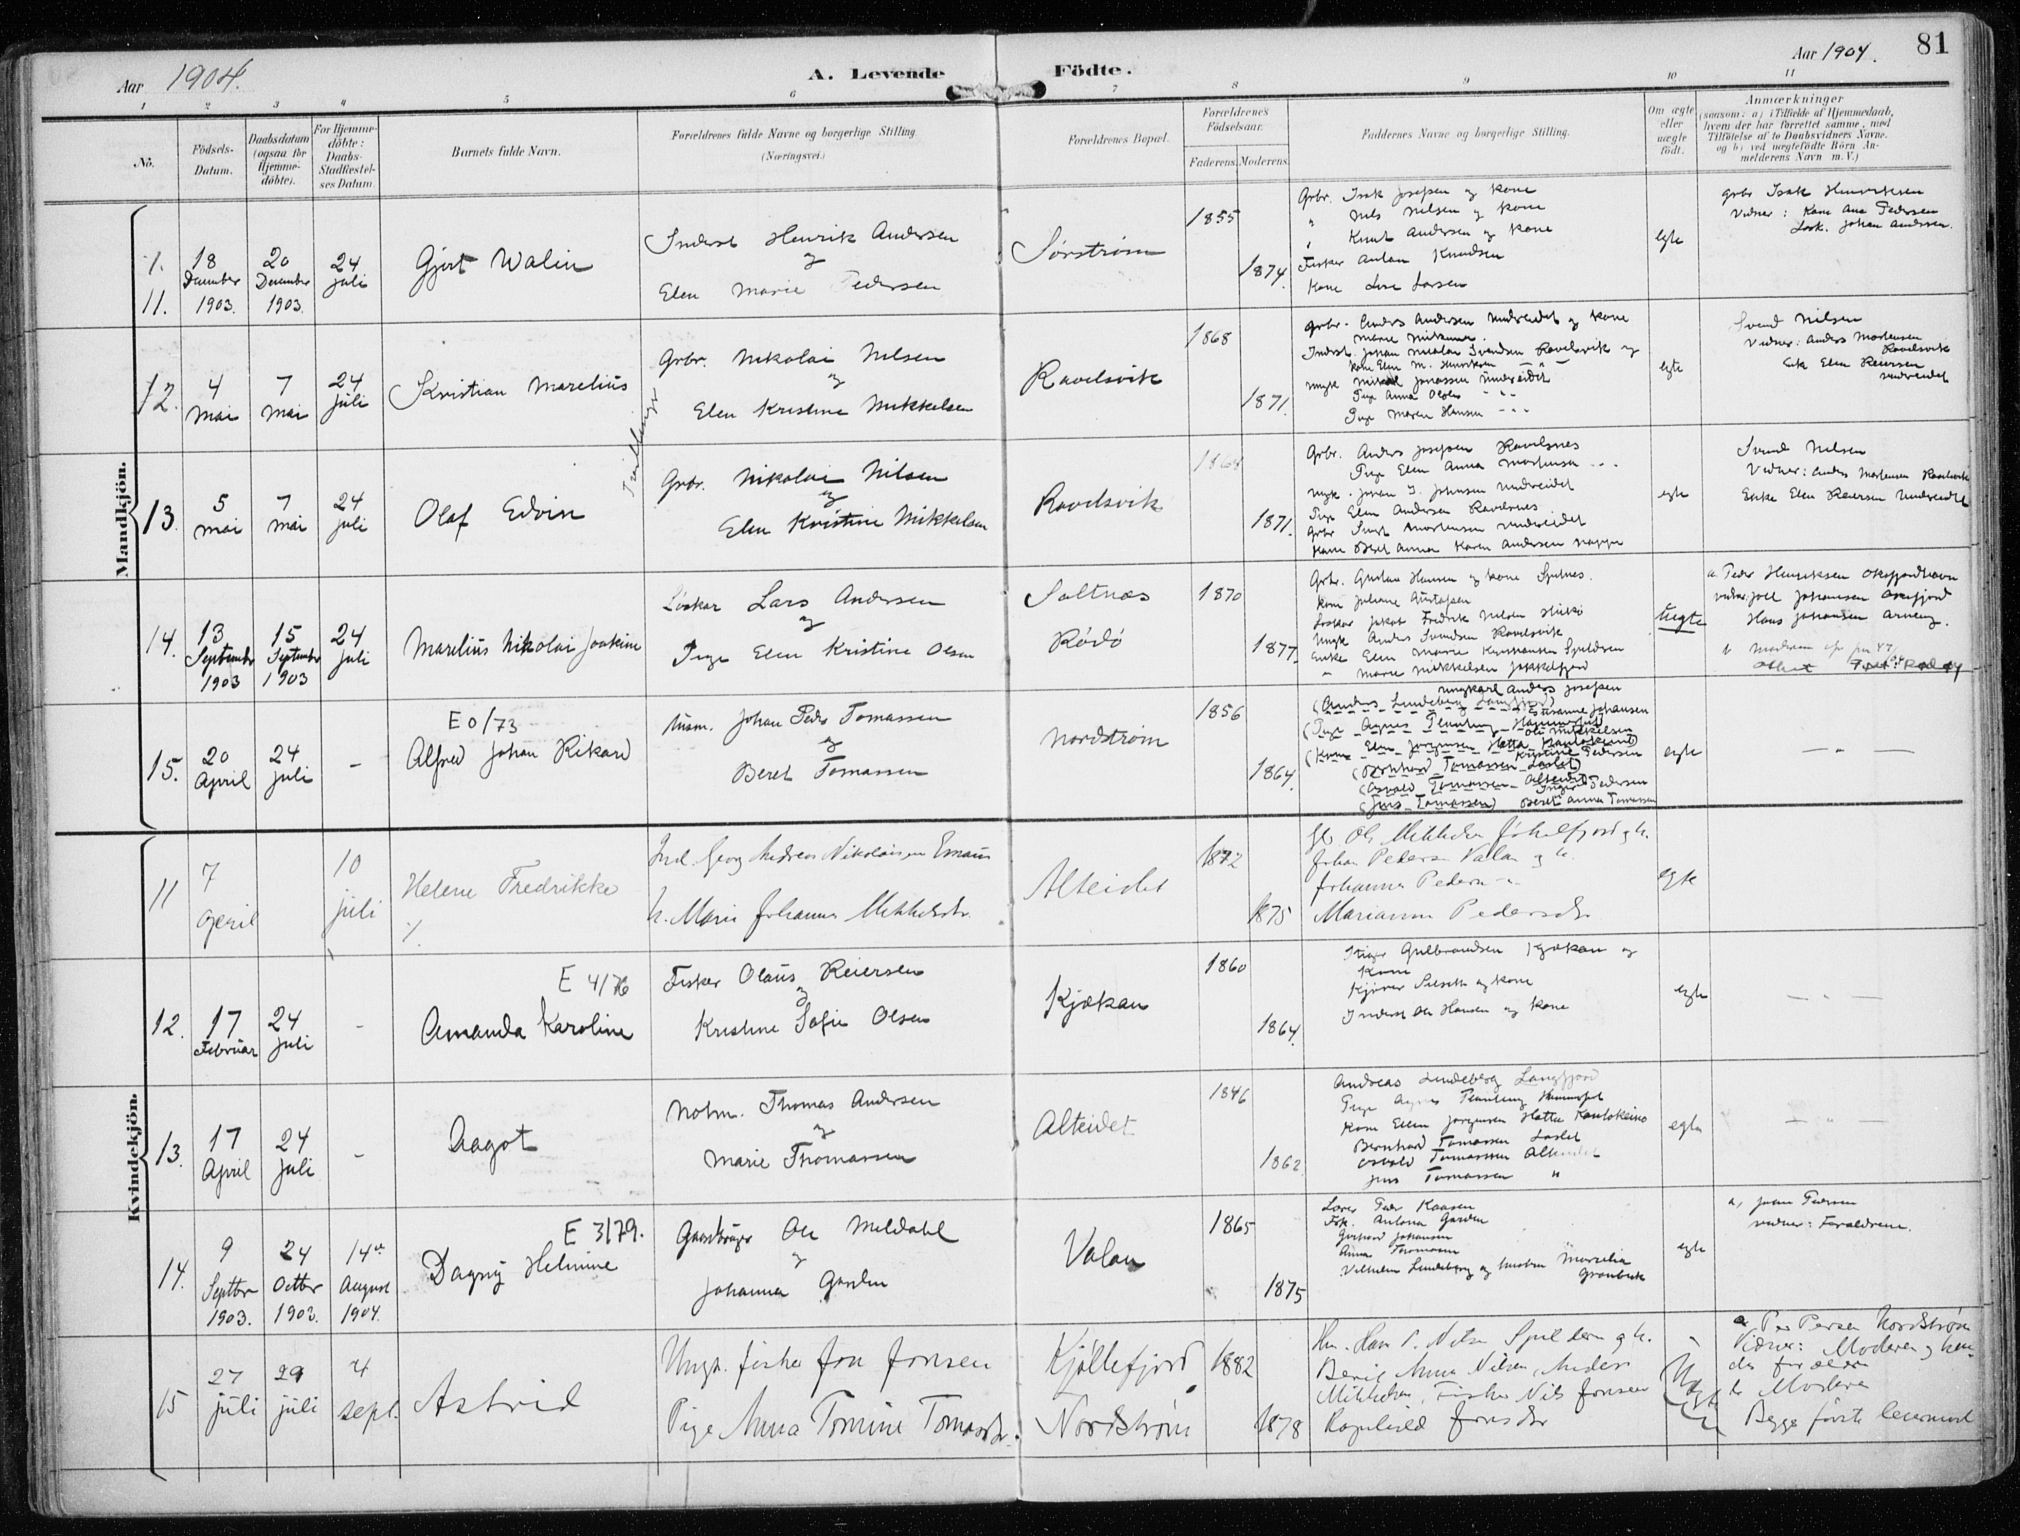 81
Aar 1904.
A. Levende Födte.
Aar 1904.
1 2 3 4 5 6 7 8 9 10 11
No.
Födsels-
Datum.
Daabsdatum
(ogsaa for
Hjemme-
döbte).
For Hjemme-
döbte:
Daabs-
Stadfæstel-
ses Datum.
Barnets fulde Navn.
Forældrenes fulde Navne og borgerlige Stilling.
(Næringsvei.)
Forældrenes Bopæl.
Forældrenes
Födselsaar.
Faderens. Moderens.
Faddernes Navne og borgerlige Stilling.
Om ægte
eller
uægte
födt.
Anmærkninger
(saasom: a) i Tilfælde af Hjemmedaab,
hvem der har forrettet samme, med
Tilföielse af to Daabsvidners Navne.
og b) ved uægtefödte Börn An-
melderens Navn m. V.)
Mandkjön.
11.
18
December
1903.
20
December
1903.
24
juli
Gjert Walin
Inderst Henrik Andersen
og
Elen Marie Pedersen
Sørstrøm
1855
1874.
Grbr. Isak Josefsen og kone
" Nils Nilsen og kone
" Knut Andersen og kone
Fisker Anton Knudsen
Kone Lise Larsen
egte
Grbr Isak Henriksen
Vidner: Kone Ana Pedersen
Losk. Johan Andersen.
12.
4
Mai
7
Mai
24
juli
Kristian Marelius
Grbr. Nikolai Nilsen
og
Elen Kristine Mikkelsen
Ravelsvik
1868
1871.
Grbr. Anders Andersen Undreidet og kone
Inderst Johan Nikolai Svendsen Ravelsvik og
kone Elen M. Henriksen
Ungk Mikal Jonassen Undreidet
Pige Anna Olsen
Pige Maren Hansen
egte
Svend Nilsen
Vidner: Anders Mortensen
Ravelsvik
Enke Elen Reiersen
Undreidet
13.
5
Mai
7
Mai
24
juli
Olaf Edvin
Grbr. Nikolai Nilsen
og
Elen Kristine Mikkelsen
Ravelsvik
1868
1871.
Grbr. Anders Josefsen Ravelsnes
Pige Elen Anna Mortensen
Ungk. Johan J. Johnsen Undreidet
Pige Elen Andersen Ravelsnes
Grbr Mortensen Undreidet
Kone Beret Anna Karen Andersen
egte
Svend Nilsen
Vidner: Anders Mortensen Ravelsvik
Enke Elen Reiersen Undreidet
14.
13
September
1903
15
September
1903
24
juli
Marelius Nikolai Joakim
Løskar Lars Andersen
og
Pige Elen Kristine Olsen
Saltnæs
Rødø
1870
1877.
Grbr. Gustav Hansen og kone Spitnes.
Kone Juliane Gustafsen
Løskar Jakob Fredrik Nilsen
Ungk Anders Svendsen Ravelsvik
Enke Elen Marie Kristiansen Spildren
" Marie Mikkelsen Jøkkelfjord
Uegte
a. Peder Henriksen Oksfjordhavn
vidner, Joel Johansen Oksfjord
Hans Johansen Arneng.
15.
20
April
24
juli
-
E 0/73
Alfred Johan Rikard
Husm. Johan Peder Tomassen
og
Beret Tomassen
Nordstrøm
1856
1864.
Ungkarl Anders Josefsen
(Anders Lindeberg Langfjord)
Susanne Johansen
Ole Mikkelsen
(Kone Elen Jørgensen Hætta Kautokeino)
Kristine Pedersen
(Bernhard Tomassen Laslet)
(Osvald Tomassen Alteidet)
Inger Pedersen
(Jens Tomassen) Beret Anna Tomassen
egte
— " —
Kvindekjön.
11
7
April
10
juli
Helene Fredrikke
Ind. Georg Andreas Nikolaisen
h. Marie Johanna Mikkelsdr.
Alteidet
1872
1875
Ole Mikkelsen Jøkelfjord g h.
Johan Pedersen Valan g h.
Johanna Pedersen
Marianne Pedersdr
egte
12.
17
Februar
24
juli
-
E 4/76
Amanda Karoline
Fisker Olaus Reiersen
og
Kristine Sofie Olsen
Kjækan
1860
1864.
Gulbrandsen Kjækan og
kone
og kone
Inderst Ole Hansen og kone
egte
— " —
13.
17
April
24
juli
-
Aagot
Thomas Andersen
og
Marie Thomassen
Alteidet
1846
1862
Andreas Lindeberg Langfjord
Kone Ellen Jørgensen Hætta Kautokeino
Bernhard Tomassen Laslet
Osvald Tomassen Alteidet
Jens Tomassen "
egte
— " —
14.
9
Septbr
1903.
24
Octbr
1903.
14de
August
1904.
E 3/79.
Dagny Helmine
Gaardbruger Ole Meldahl
og
Johanna Garden
Valan
1865
1875
Lærer Peder Kaasen
Frk. Antona Garden
Gerhard Johansen
Anna Thomassen
Vilhelm Lindeberg og hustru Marselia
Grønbeck
egte
vidner: Forældrene.
15
27
juli
29
juli
4
sept.
Astrid
Ungk. fisker Jon Jonsen
Pige Anna Tomine Tomasdr.
Kjøllefjord
Nordstrøm
1882
1878
Hm. Hans P. Nilsen Spildern g h.
Berit Anna Nilsen, Anders
Mikkelsen, Fisker Nils Jonsen
Ragnhild Jonsdr
Uegte
a Per Persen Nordstrøm
Vidner: Moderen og hen-
des forældre
b Moderen
Begge første leiermaal